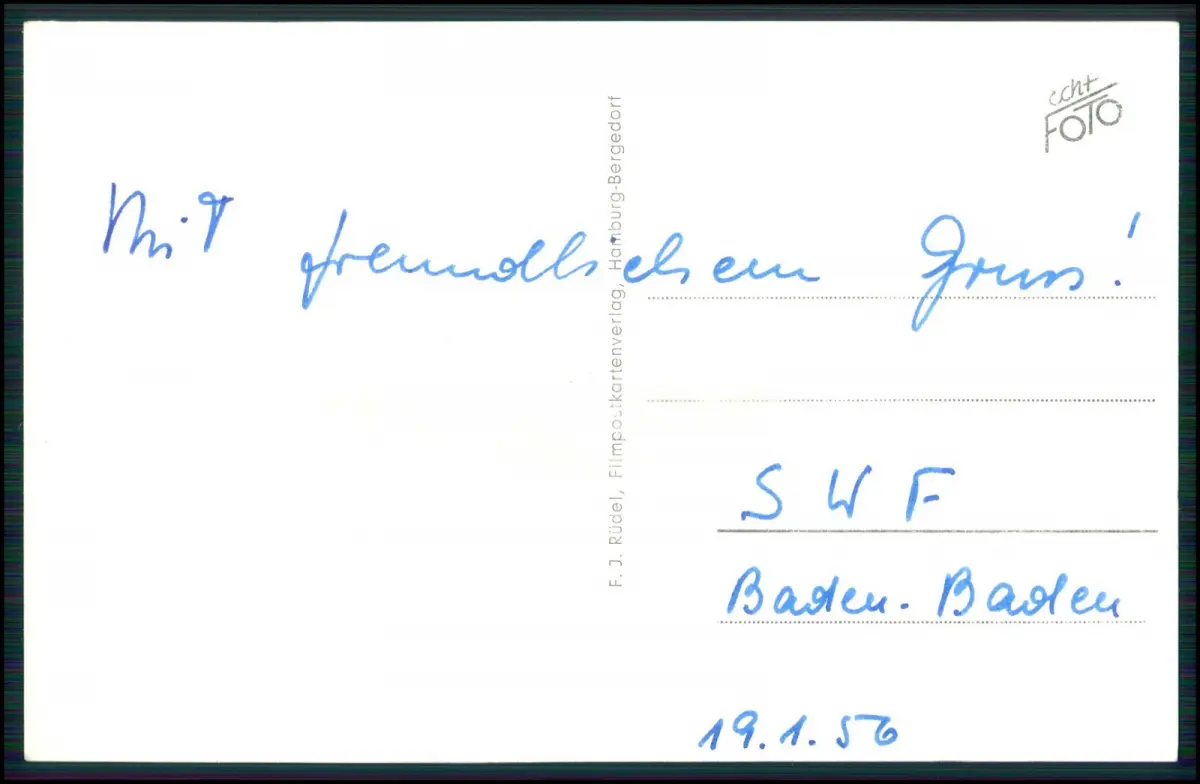 echt
FOTO
Mit freundlichem Gruss!
F. J. Rüdel, Filmpostkartenverlag, Hamburg-Bergedorf
S W F
Baden-Baden
19.1.56